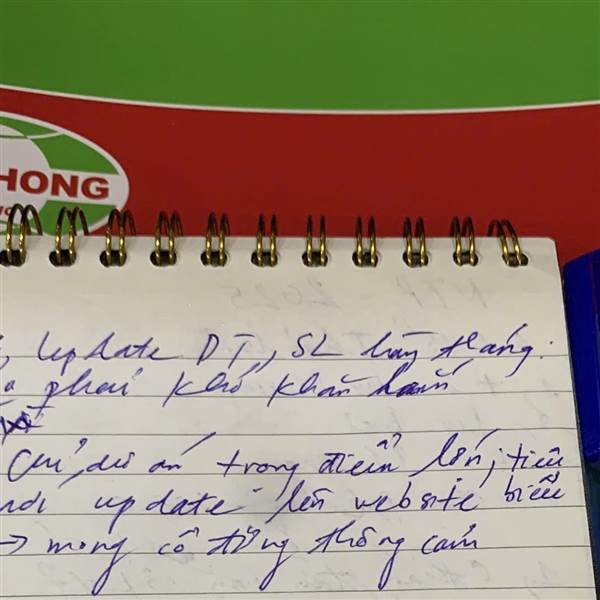 HONG
update DT, SL hàng tháng.
phải khó khăn
Chỉ, dự án trong điểm lớn, tiêu
update lên website biểu
→ mong cổ đông thông cảm